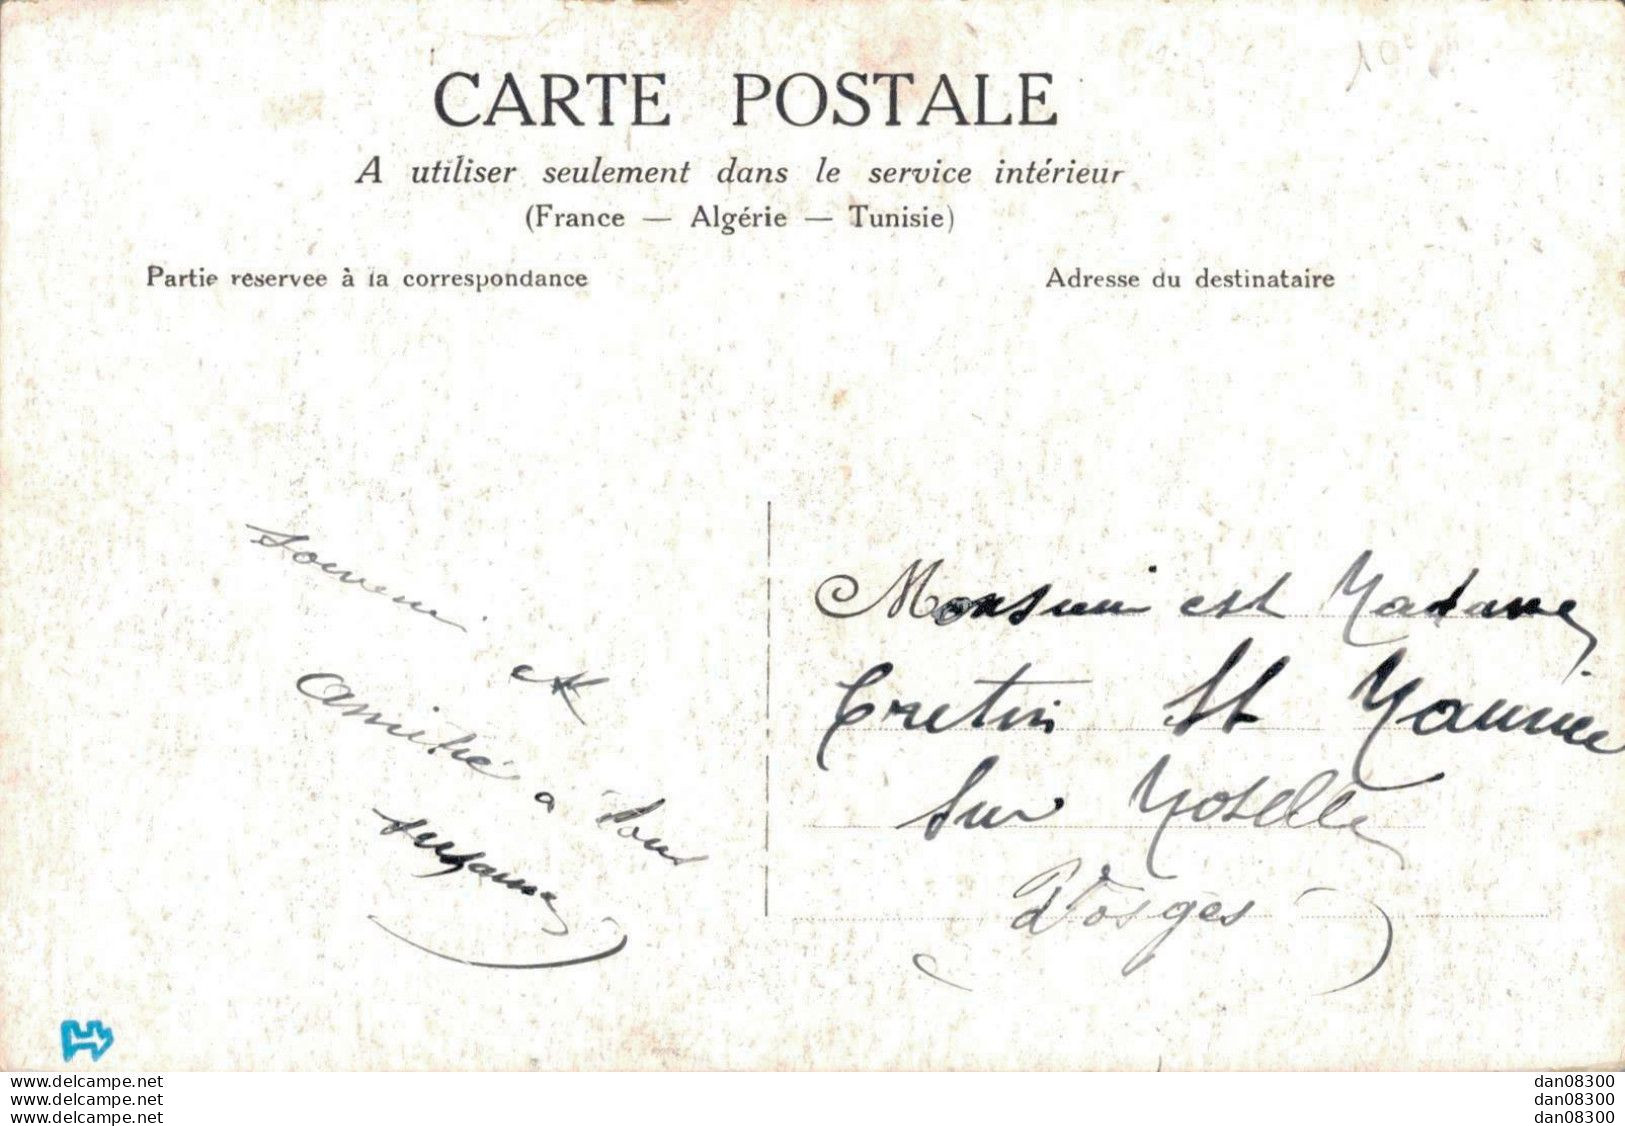 CARTE POSTALE
A utiliser seulement dans le service intérieur
(France — Algérie — Tunisie)
Partie réservee à la correspondance
Adresse du destinataire
souvenir
et
amitié à tous
suzanne
Monsieur est Madame
Cretin St Maurice
sur Moselle
Vosges
www.delcampe.net
www.delcampe.net
www.delcampe.net
dan08300
dan08300
dan08300